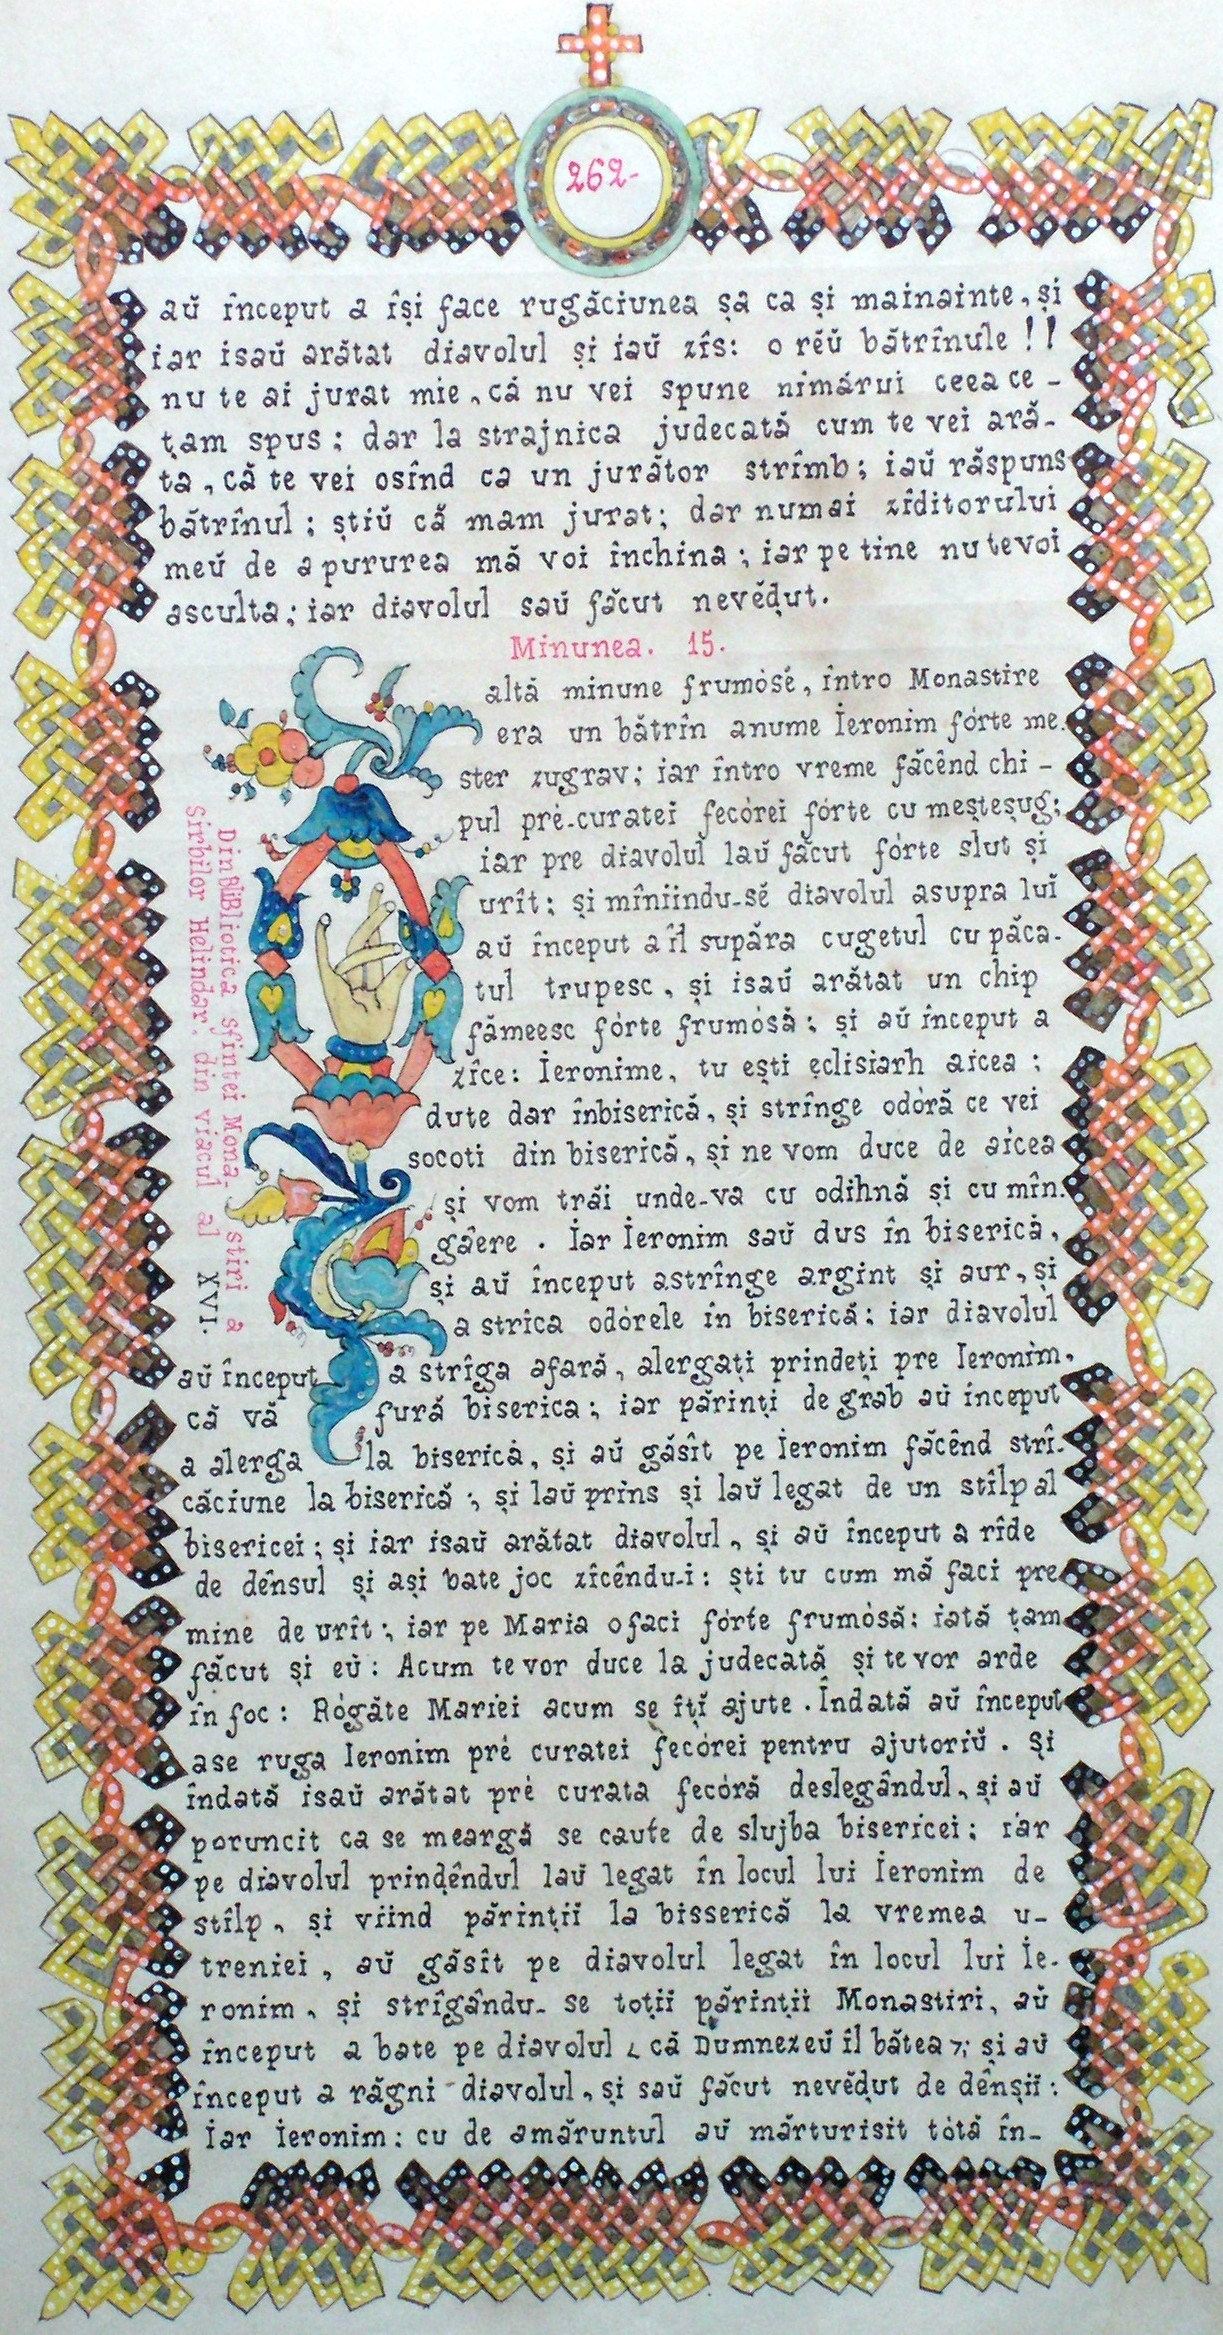 262-
aŭ început a își face rugăciunea sa ca și mainainte, și
iar isaŭ arătat diavolul și iaŭ zîs: o rĕŭ bătrînule!!
nu te ai jurat mie, că nu vei spune nimărui ceea ce -
țam spus; dar la strajnica judecată cum te vei ară-
ta, că te vei osînd ca un jurător strîmb; iaŭ răspuns
bătrînul; știŭ că mam jurat; dar numai zîditorului
meŭ de apururea mă voi închina; iar pe tine nu tevoi
asculta; iar diavolul saŭ făcut nevĕḍut.
Minunea. 15.
altă minune frumósĕ, întro Monastire
era un bătrîn anume Ieronim fórte me.
ster zugrav; iar întro vreme făcênd chi -
pul pré-curatei fecórei fórte cu meșteșug;
iar pre diavolul laŭ făcut fórte slut și
urît; și mîniindu-sĕ diavolul asupra luĭ
aŭ început a îl supăra cugetul cu păca-
tul trupesc, și isaŭ arătat un chip
fămeesc fórte frumósă; și aŭ început a
zîce: Ieronime, tu ești eclisiarh aicea;
dute dar înbiserică, și strînge odóră ce vei
socoti din biserică, și ne vom duce de aicea
și vom trăi unde-va cu odihnă și cu mîn.
găere. Iar Ieronim saŭ dus în biserică,
și aŭ început astrînge argint și aur, și
a strica odórele în biserică; iar diavolul
aŭ început a strîga afară, alergați prindeți pre Ieronim,
că vă fură biserica; iar părinți de grab aŭ început
a alerga la biserică, și aŭ găsît pe Ieronim făcênd strî-
căciune la biserică; și laŭ prins și laŭ legat de un stîlp al
bisericei; și iar isaŭ arătat diavolul, și aŭ început a rîde
de dênsul și ași bate joc zîcêndu-i: ști tu cum mă faci pre
mine de urît; iar pe Maria o faci fórte frumósă: iată țam
făcut și eŭ: Acum te vor duce la judecată și te vor arde
în foc: Rógăte Mariei acum se îțĭ ajute. Îndată aŭ început
ase ruga Ieronim pré curatei fecórei pentru ajutoriŭ. Și
îndată isaŭ arătat pré curata fecóră deslegândul, și aŭ
poruncit ca se meargă se caute de slujba bisericei; iar
pe diavolul prinḍêndul laŭ legat în locul lui Ieronim de
stîlp, și viind părinții la bisserică la vremea u-
treniei, aŭ găsît pe diavolul legat în locul lui Ie-
ronim, și strîgându-se toții părinții Monastiri, aŭ
început a bate pe diavolul ⹁ că Dumnezeŭ îl bătea; și aŭ
început a răgni diavolul, și saŭ făcut nevĕḍut de dênșiĭ:
Iar Ieronim: cu de amăruntul aŭ mărturisit tótă în-
Din Bibliotica sfintei Mona-stiri a
sirbilor Helindar. din viacul al XVI.